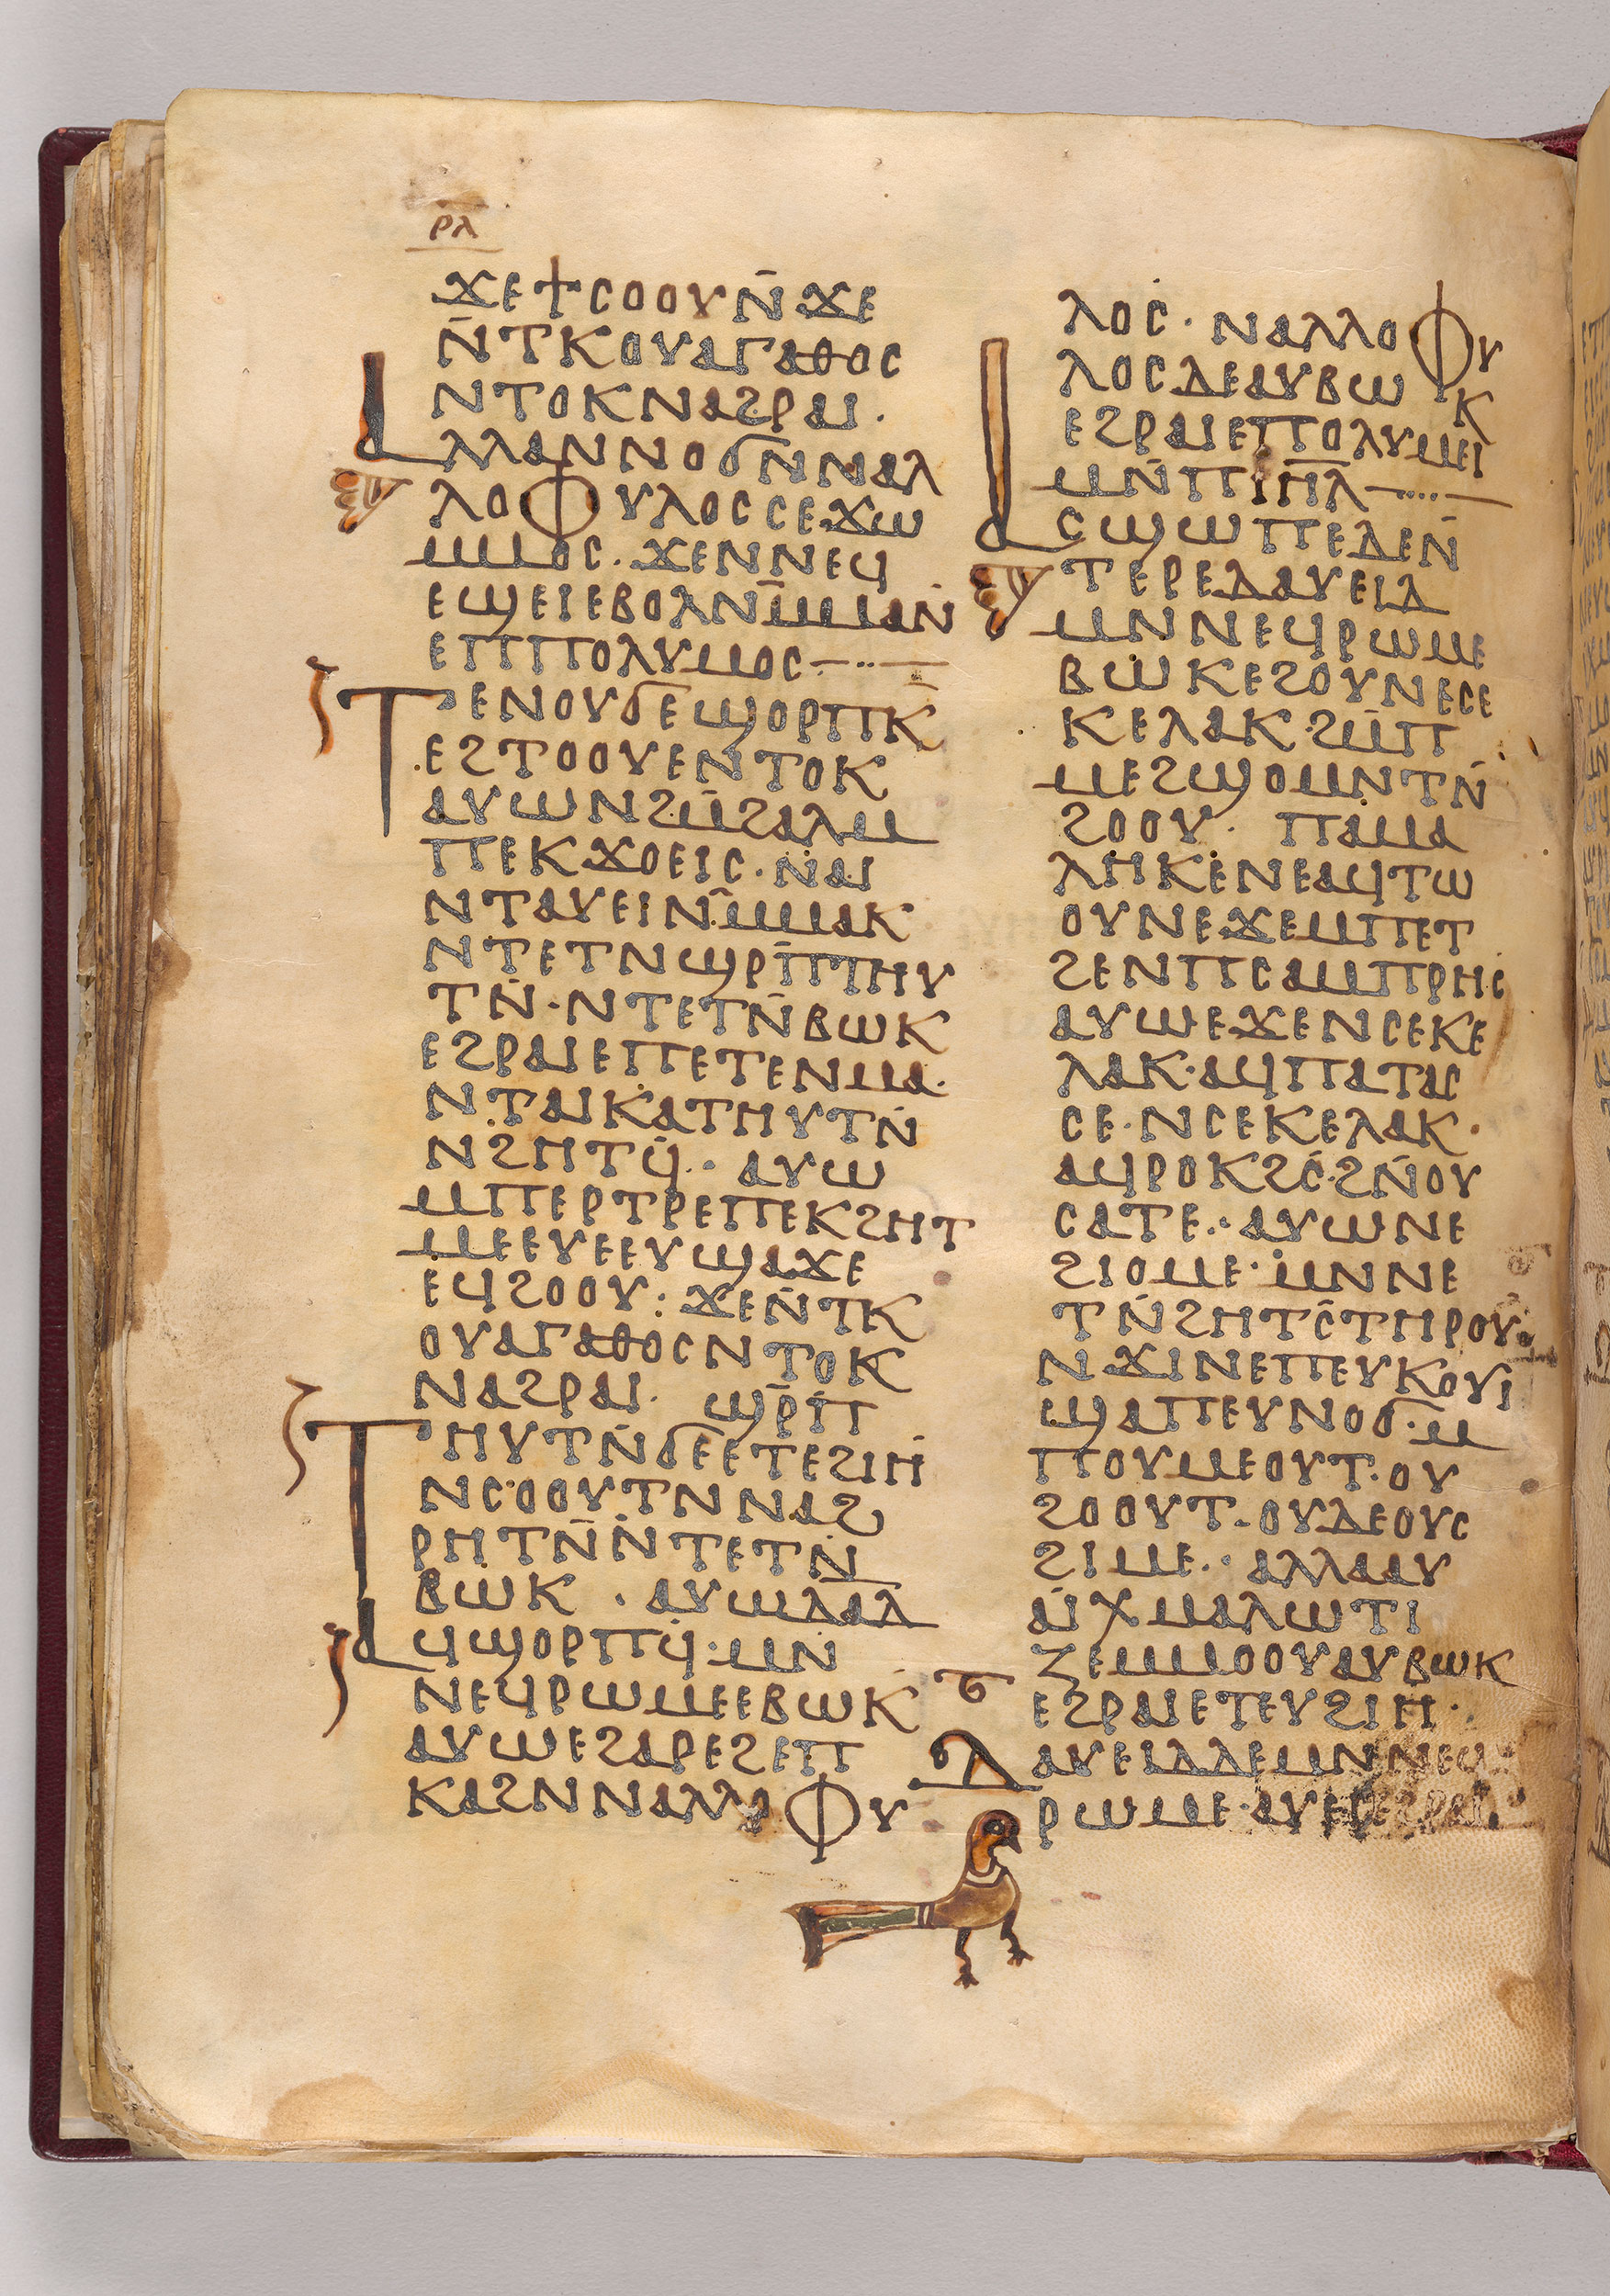 ⲣⲗ
ϫⲉϯⲥⲟⲟⲩⲛ̄ϫⲉ
ⲛ̄ⲧⲕⲟⲩⲁⲅⲁⲑⲟⲥ
ⲛⲧⲟⲕⲛⲁϩⲣⲁⲓ·
ⲁⲗⲗⲁⲛⲛⲟϭⲛⲛⲁⲗ
ⲗⲟⲫⲩⲗⲟⲥⲥⲉϫⲱ
ⲙⲙⲟⲥ·ϫⲉⲛⲛⲉϥ
ⲉϣⲉⲓⲉⲃⲟⲗⲛⲙ̄ⲙⲁⲛ̄
ⲉⲡⲡⲟⲗⲩⲙⲟⲥ—··—
ⲧⲉⲛⲟⲩϭⲉϣⲟⲣⲡⲕ̄
ⲉϩⲧⲟⲟⲩⲉⲛⲧⲟⲕ
ⲁⲩⲱⲛϩⲙ̄ϩⲁⲗⲙ
ⲡⲉⲕϫⲟⲉⲓⲥ·ⲛⲁⲓ
ⲛⲧⲁⲩⲉⲓⲛⲙ̄ⲙⲁⲕ
ⲛⲧⲉⲧⲛϣⲣ̄ⲡⲧⲏⲩ
ⲧⲛ̄·ⲛⲧⲉⲧⲛ̄ⲃⲱⲕ
ⲉϩⲣⲁⲓⲉⲡⲉⲧⲉⲛⲙⲁ·
ⲛⲧⲁⲓⲕⲁⲧⲏⲩⲧⲛ̄
ⲛϩⲏⲧϥ̄·ⲁⲩⲱ
ⲙⲡⲉⲣⲧⲣⲉⲡⲉⲕϩⲏⲧ
ⲙⲉⲉⲩⲉⲉⲩϣⲁϫⲉ
ⲉϥϩⲟⲟⲩ:ϫⲉⲛ̄ⲧⲕ
ⲟⲩⲁⲅⲁⲑⲟⲥⲛⲧⲟⲕ
ⲛⲁϩⲣⲁⲓ·ϣⲣ̄ⲡ
ⲧⲏⲩⲧⲛ̄ϭⲉⲉⲧⲉϩⲓⲏ
ⲛⲥⲟⲟⲩⲧⲛⲛⲁϩ
ⲣⲏⲧⲛ̄ⲛ̄ⲧⲉⲧⲛ̄
ⲃⲱⲕ·ⲁⲩⲱⲇⲁⲇ
ⲁϥϣⲟⲣⲡϥ̄·ⲙⲛ
ⲛⲉϥⲣⲱⲙⲉⲉⲃⲱⲕ
ⲁⲩⲱⲉϩⲁⲣⲉϩⲉⲡ
ⲕⲁϩⲛⲛⲁⲗⲗⲟⲫⲩ
ⲗⲟⲥ·ⲛⲁⲗⲗⲟⲫⲩ
ⲗⲟⲥⲇⲉⲁⲩⲃⲱⲕ
ⲉϩⲣⲁⲓⲉⲡⲟⲗⲩⲙⲉⲓ
ⲙⲛ̄ⲡⲓⲏ̄ⲗ—····—
ⲁⲥϣⲱⲡⲉⲇⲉⲛ̄
ⲧⲉⲣⲉⲇⲁⲩⲉⲓⲇ
ⲙⲛⲛⲉϥⲣⲱⲙⲉ
ⲃⲱⲕⲉϩⲟⲩⲛⲉⲥⲉ
ⲕⲉⲗⲁⲕ·ϩⲙ̄ⲡ
ⲙⲉϩϣⲟⲙⲛⲧⲛ̄
ϩⲟⲟⲩ·ⲡⲁⲙⲁ
ⲗⲏⲕⲉⲛⲉⲁϥⲧⲱ
ⲟⲩⲛⲉϫⲉⲙⲡⲉⲧ
ϩⲉⲛⲡⲥⲁⲙⲡⲣⲏⲥ
ⲁⲩⲱⲉϫⲉⲛⲥⲉⲕⲉ
ⲗⲁⲕ·ⲁϥⲡⲁⲧⲁⲥ
ⲥⲉ·ⲛⲥⲉⲕⲉⲗⲁⲕ·
ⲁϥⲣⲟⲕϩⲥ̄·ϩⲛ̄ⲟⲩ
ⲥⲁⲧⲉ·ⲁⲩⲱⲛⲉ
ϩⲓⲟⲙⲉ·ⲙⲛⲛⲉ
ⲧⲛ̄ϩⲏⲧⲥ̄ⲧⲏⲣⲟⲩ·
ⲛϫⲓⲛⲉⲡⲉⲩⲕⲟⲩⲓ
ϣⲁⲡⲉⲩⲛⲟϭ·ⲙ
ⲡⲟⲩⲙⲉⲟⲩⲧ·ⲟⲩ
ϩⲟⲟⲩⲧ·ⲟⲩⲇⲉⲟⲩⲥ
ϩⲓⲙⲉ·ⲁⲗⲗⲁⲁⲩ
ⲁⲓⲭⲙⲁⲗⲱⲧⲓ
ⲍⲉⲙⲙⲟⲟⲩⲁⲩⲃⲱⲕ
ⲉϩⲣⲁⲓⲉⲧⲉⲩϩⲓⲏ·
ⲇⲁⲩⲉⲓⲇⲇⲉⲙⲛⲛⲉϥ
ⲣⲱⲙⲉ·ⲁⲩⲉⲓ